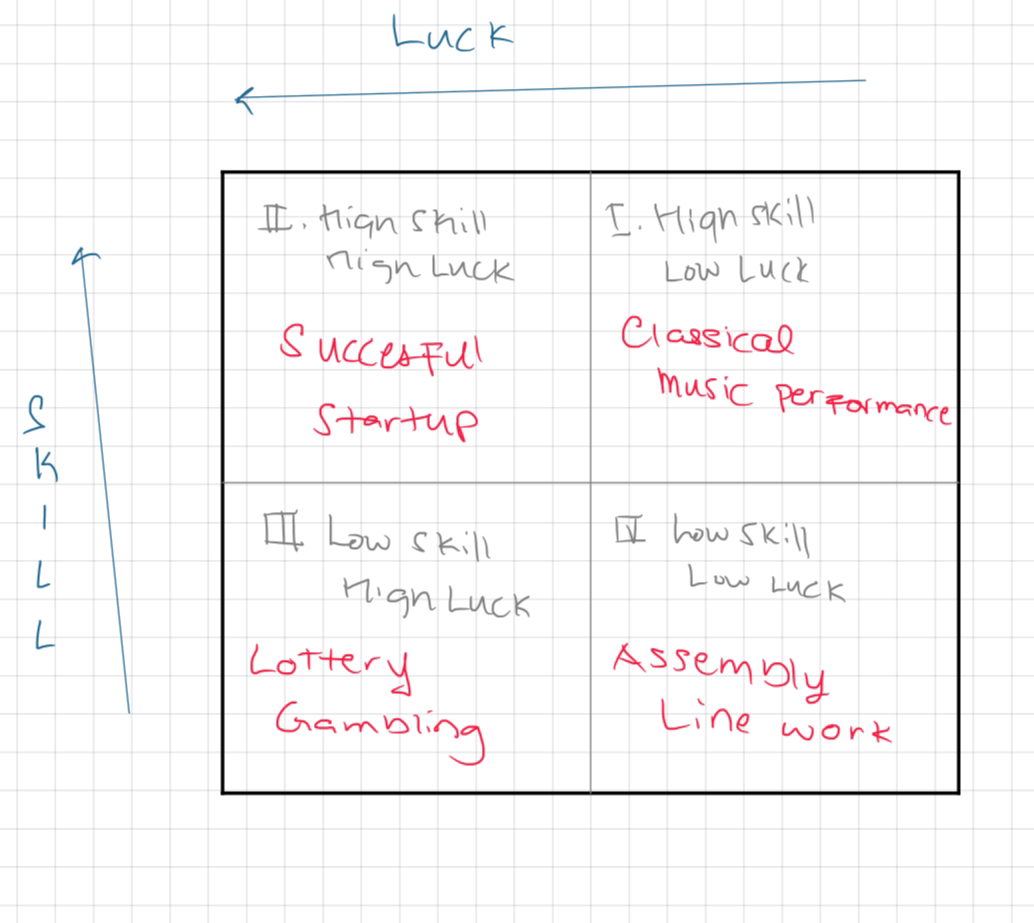 Luck
SKILL
II. High Skill
High Luck
Succesful
Startup
I. High Skill
Low Luck
Classical
music performance
III Low Skill
High Luck
Lottery
Gambling
IV Low Skill
Low Luck
Assembly
Line work